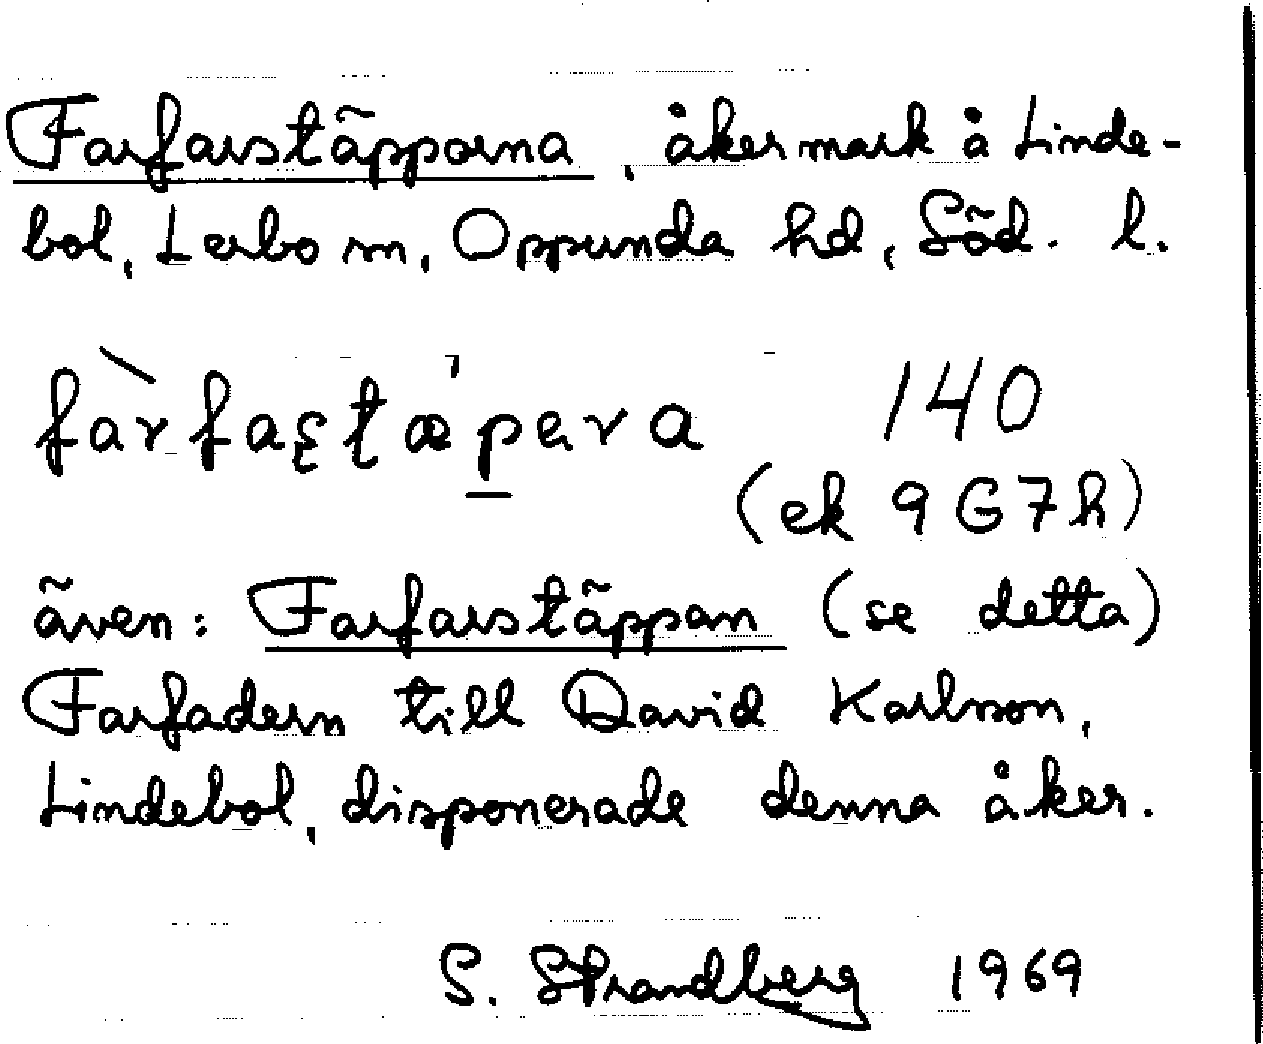 Farfarstäpporna, åkermark å Linde-
bol, Lerbo sn, Oppunda hd, Söd. l.
fàrfaʂtæ'pera 140
(ek 9 G 7 h)
även: Farfarstäppan (se detta)
Farfadern till David Karlsson,
Lindebol, disponerade denna åker.
S. Strandberg 1969